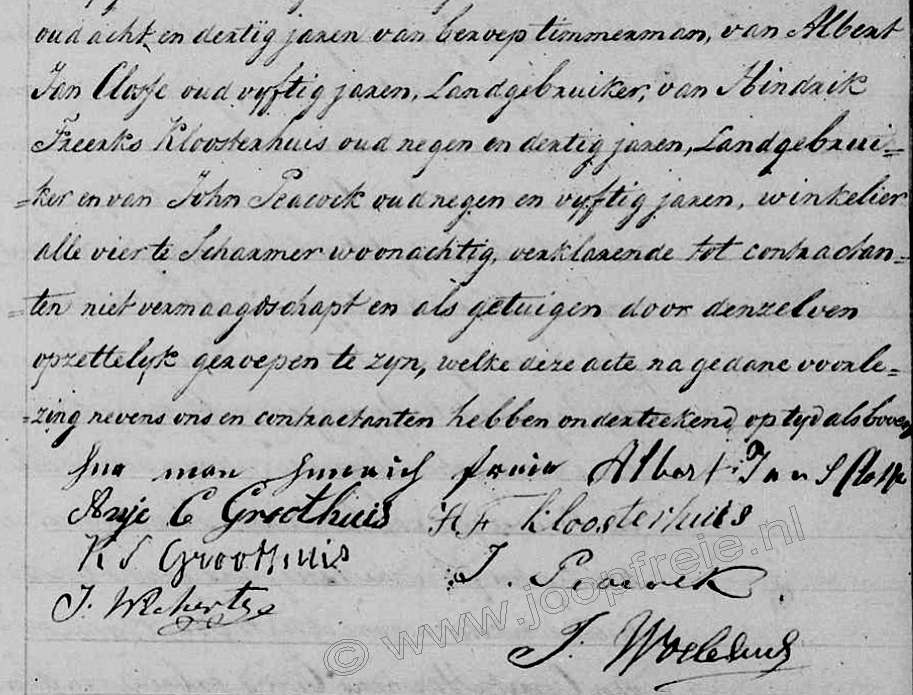 oud acht en dertig jaren van beroep timmerman, van Albert
Jan Closse oud vyftig jaren, Landgebruiker, van Hindrik
Freerks Kloosterhuis oud negen en dertig jaren, Landgebrui=
=ker en van John Peacock oud negen en vyftig jaren, winkelier
alle vier te Scharmer woonachtig, verklarende tot contractan=
=ten niet vermaagdschapt en als getuigen door denzelven
opzettelyk geroepen te zyn, welke deze acte na gedane voorle=
=zing nevens ons en contractanten hebben onderteekend, op tyd als boven
Albert Jans
Anje C Groothuis H F Kloosterhuis
K S Groothuis
J. Peacock
J. Wicherts
J.
© www.joopfreie.nl